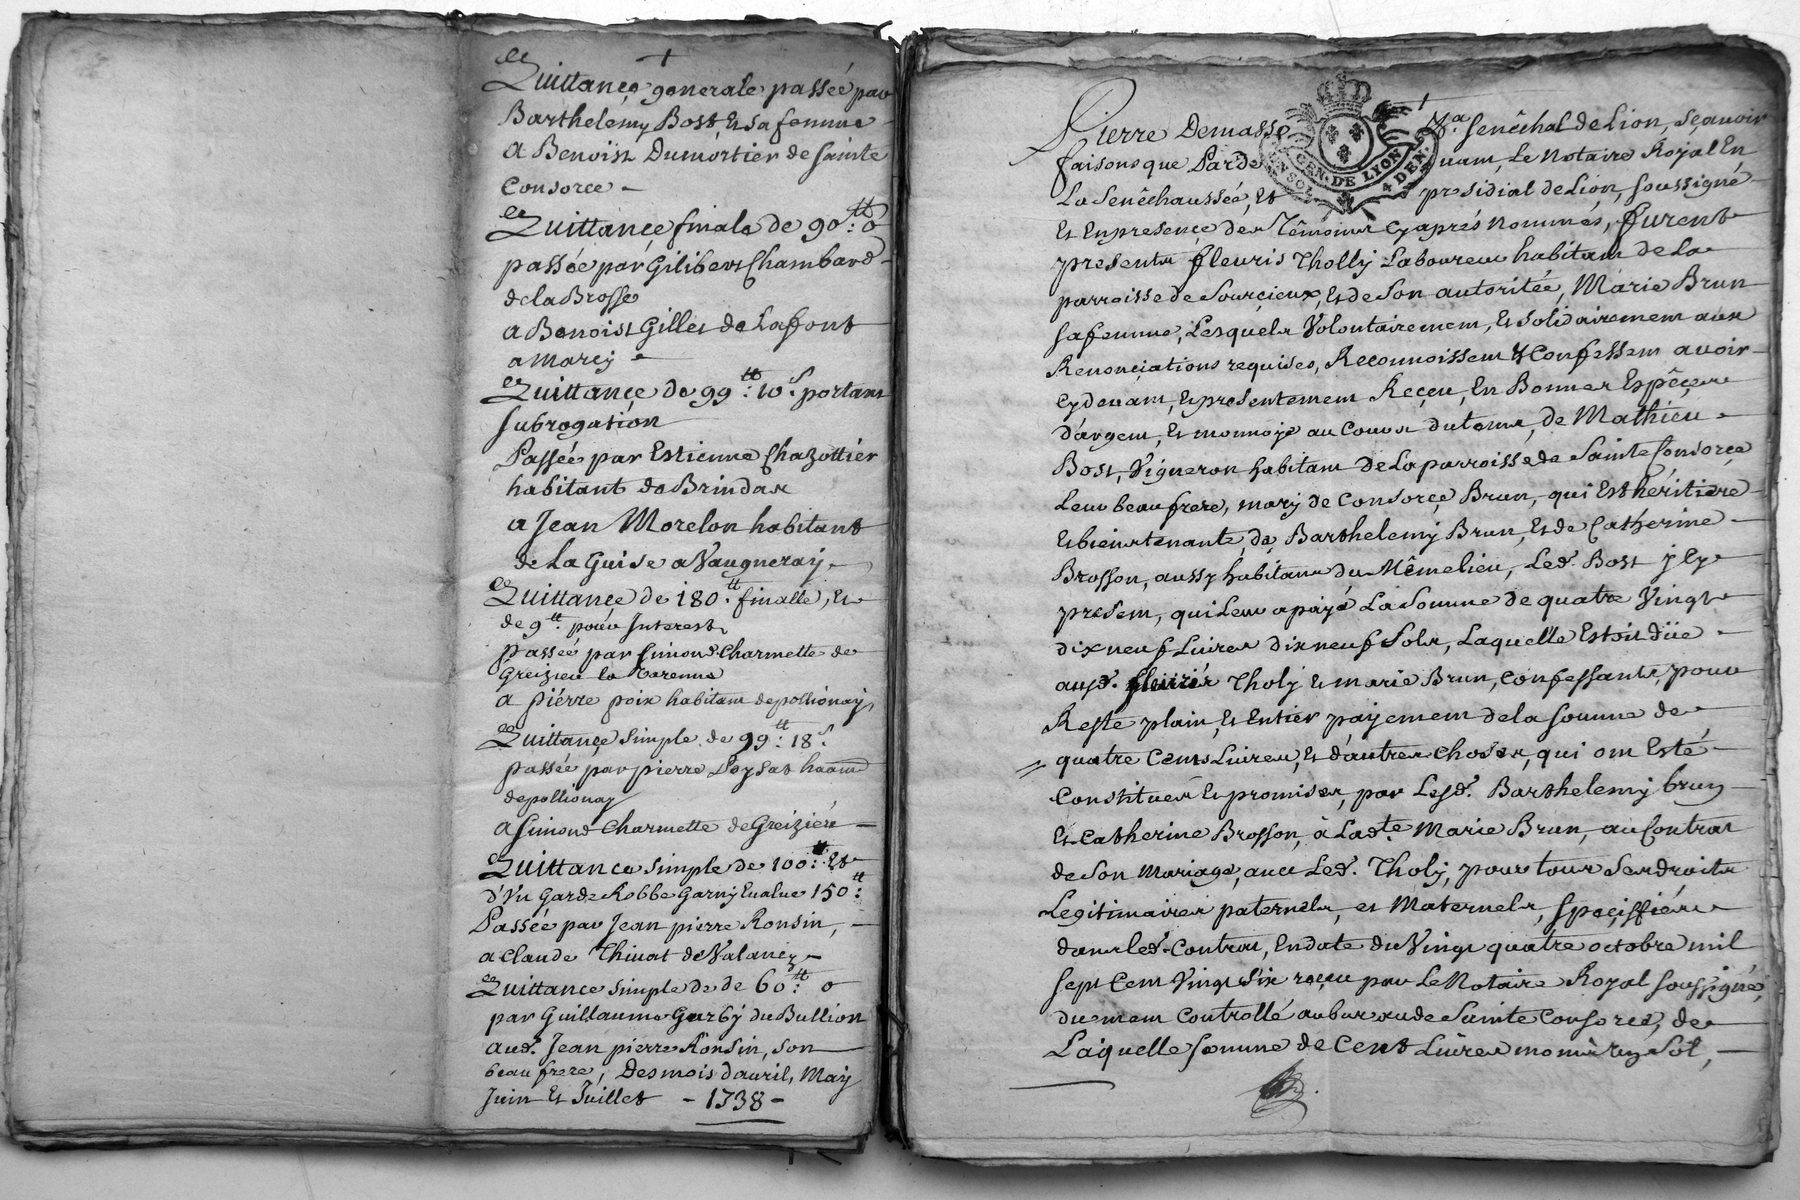 Quittançe generale passée par
Barthelemy Bost, et sa femme
a Benoist Dumortier de sainte
Consorce
Quittançe finale de 90tt: 0
passée par Gilibert Chambard
de la Brosse
a Benoist Gilles de Lafont
a Marcy
Quittançe de 99tt: 10s portant
subrogation
Passée par Estienne Chazottier
habitant de Brindas
a Jean Morelon habitant
de La Guise a Vaugneray
Quittançe de 180tt. finalle, et
de 9tt. pour Interest
passée par Simond Charmette de
Greizieu la Varenne
a piérre poix habitant de pollionay
Quittançe simple de 99tt: 18s.
passée par pierre Loysat
de pollionay
a Simond Charmette de Greiziéu
Quittance simple de 100tt: Et
d'Vn Garde Robbe Garny Evalué 150tt:
Passée par Jean pierre Ronsin,
a Claude Thivat de
Quittance simple de de 60tt: 0
par Guillaume Gurby du Bullion
aud. Jean pierre Ronsin, son
beau frere, Des mois d'avril, May
Juin Et Juillet - 1738 -
Pierre Demasso senêchal de Lion, sçavoir
faisons que Pardevant, Le Notaire Royal En
GEN. DE LION 4 DEN.
La Senêchaussée, et presidial de Lion, soussigné
Et En presençe des Têmoins cy aprés nommés, furent
presents fleuris Tholly Laboureur habitant de La
parroisse de Sourçieux, Et de Son autoritée, Marie Brun
sa femme, Lesquels Volontairement, Et solidairement aux
Renonçiations requises, Reconnoissent & Confessent avoir
cy devant, Et presentement Reçeu, En Bonnes Espêçes
d'argent, Et monnoye au Cours du tems, de Mathieu
Bost, Vigneron habitant de La parroisse de Sainte Consorçe
Leur beau frere, mary de Consorçe Brun, qui Est héritiere
Et bien tenante, de Barthelemy Brun, Et de Catherine
Brosson, aussy habitans du Mêmelieu, Led. Bost y cy
present, qui Leur a payé La Somme de quatre Vingt
dix neuf Livres dix neuf Sols, Laquelle Estoit düe
ausd. fleuris Tholy et Marie Brun, Confessants, pour
Reste plain, Et Entier payement de la somme de
quatre Cents Livres, Et d'autres choses, qui ont Esté
Constituées Et promises, par Lesd. Barthelemy brun
Et Catherine Brosson, à Ladte Marie Brun, au Contrat
de Son Mariage, avec Led. Tholy, pour tous Ses droits
Legitimaires paternels, et Maternels, Speçiffiés
dans led. Contrat, En date du Vingt quatre octobre mil
sept Cent Vingt Six reçeu par Le Notaire Royal soussigné,
duement Controllé au bureau de Sainte Consorce, de
Laquelle somme de Cent Livres moins un Sol,